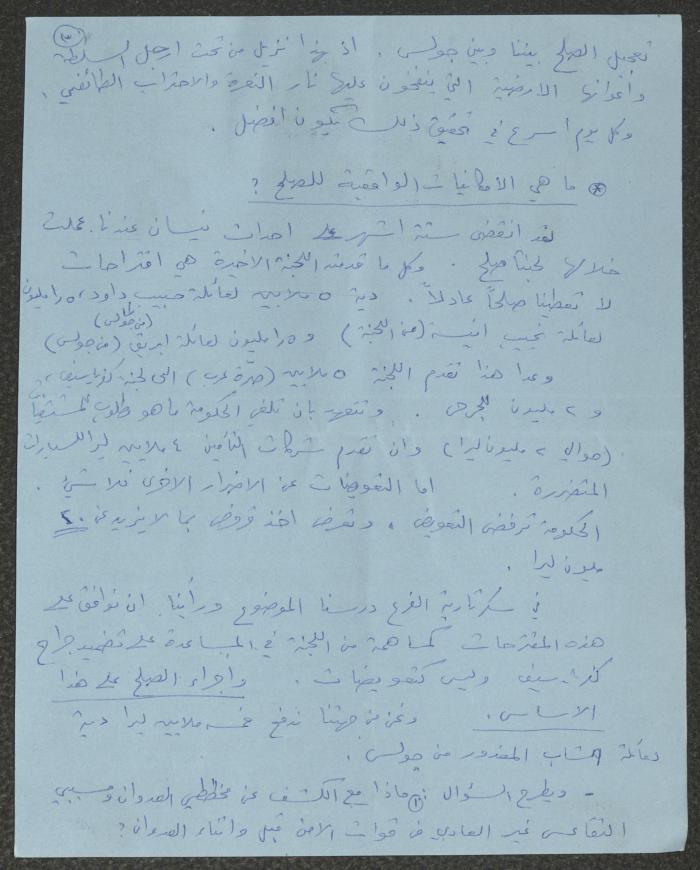 (٣)
تعجيل الصلح بيننا وبين جولس . اذ بهذا نزيل من تحت ارجل السلطة
وأعوانها الارضية التي ينفخون عليها نار النعرة والاحتراب الطائفي .
وكل يوم أسرع في تحقيق ذلك يكون افضل .
* ما هي الأمكانيات الواقعية للصلح ؟
لقد انقضى ستة اشهر على احداث نيسان عندنا. عملت
خلالها لجنتا صلح . وكل ما قدمته اللجنة الاخيرة هي اقتراحات
لا تعطينا صلحاً عادلاً . دية ٥ ملايين لعائلة حبيب داود، ١٫٥ مليون
(من جولس)
لعائلة نجيب انيسة (من اللجنة) و ١٫٥ مليون لعائلة ابريق (من جولس)
وعدا هذا تقدم اللجنة ٥ ملايين (صرّة عرب) الى لجنة كفرياسيف،
و ٢ مليون للجرحى . وتتعهد بان تلغي الحكومة ما هو مطلوب للمستشفيات
(حوالي ٢ مليون ليرا) وان تقدم شركات التأمين ٤ ملايين ليرا للسيارات
المتضررة . اما التعويضات عن الاضرار الاخرى فلا شيء .
الحكومة ترفض التعويض ، وتعرض اخذ قروض بما لا يزيد عن ٢٠
مليون ليرا .
في سكرتارية الفرع درسنا الموضوع ورأينا ان نوافق على
هذه المقترحات كمساهمة من اللجنة في المساعدة على تضميد جراح
كفرياسيف وليس كتعويضات . واجراء الصلح على هذا
الاساس . ونحن من جهتنا ندفع خمسة ملايين ليرا دية
لعائلة الشاب المغدور من جولس .
- ويطرح السؤال : ① ماذا مع الكشف عن مخططي العدوان ومسببي
التقاعس غير العادي من قوات الامن قبل واثناء العدوان ؟